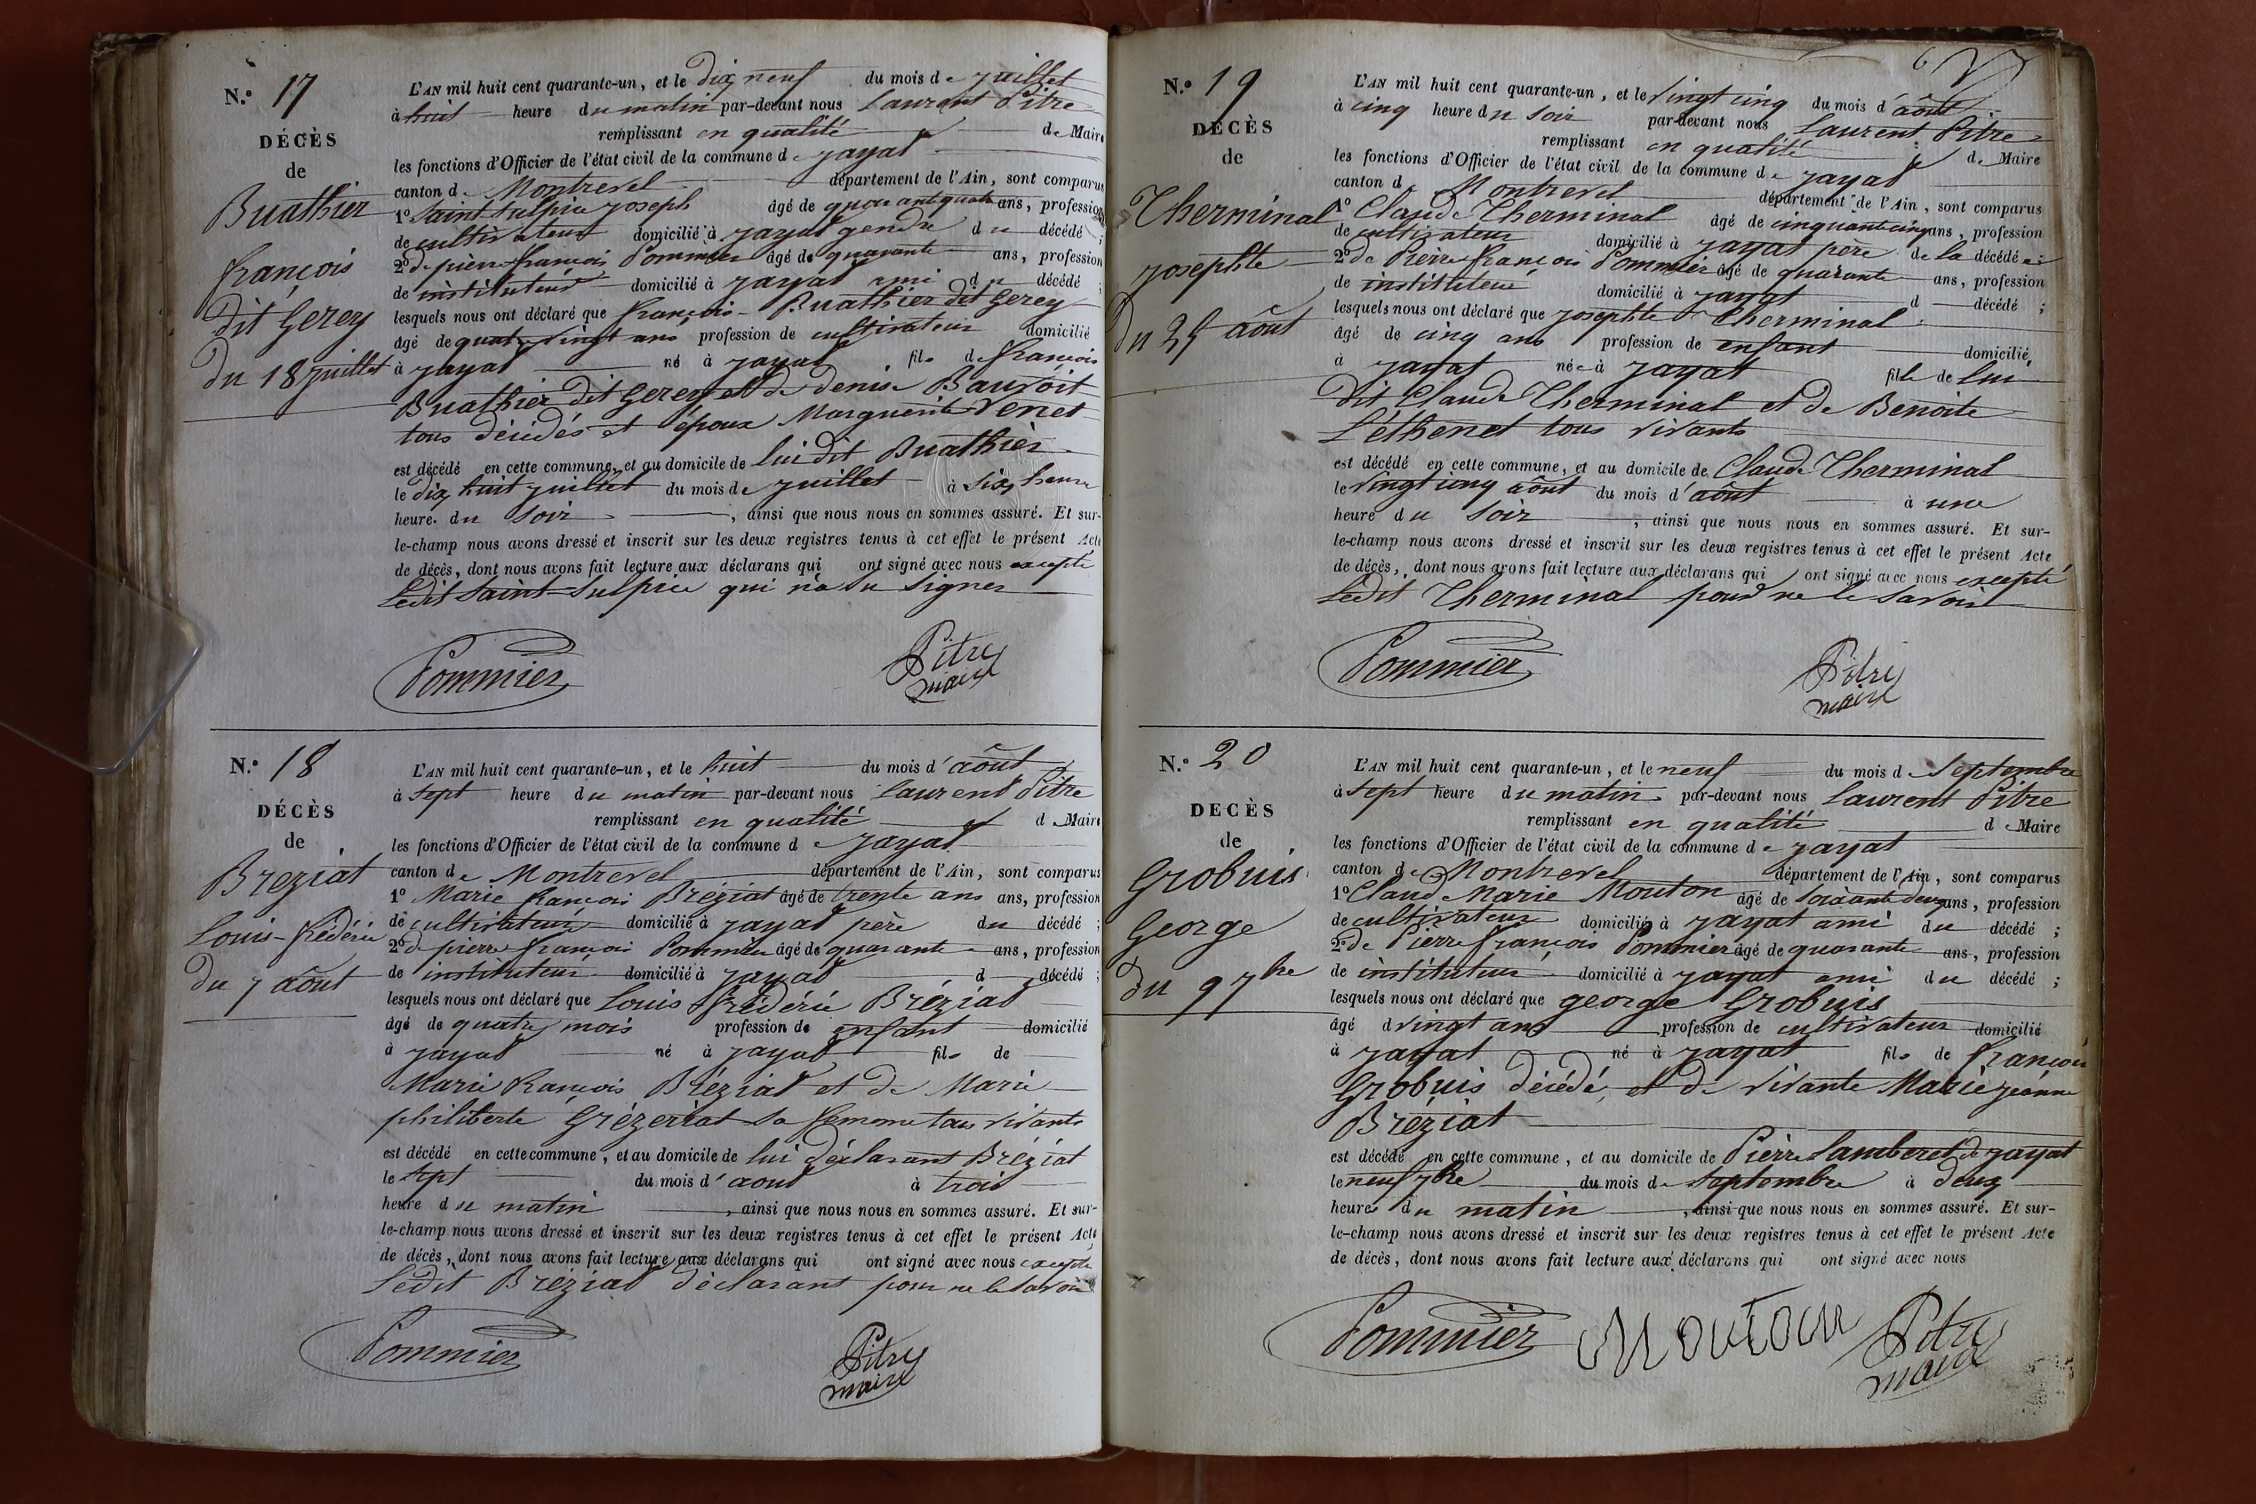 N.o 17
DÉCÈS
de
Buathier
françois
dit Gerey
du 18 juillet
L'AN mil huit cent quarante-un, et le dix neuf du mois de juillet
à huit heure du matin par-devant nous Laurent Pitre
remplissant en qualité de Maire
les fonctions d'Officier de l'état civil de la commune de jayat
canton de Montrevel département de l'Ain, sont comparus
1o Saint Sulpice joseph âgé de quarantquatre ans, profession
de cultivateur domicilié à jayat gendre du décédé ;
2o de pierre françois Pommier âgé de quarante ans, profession
de instituteur domicilié à jayat ami du décédé ;
lesquels nous ont déclaré que françois Buathier dit Gerey
âgé de quatre vingt ans profession de cultivateur domicilié
à jayat né à jayat fils de françois
Buathier dit Gerey et de denise Bauvoit
tous décédés et époux Marguerite Venet
est décédé en cette commune, et au domicile de lui dit Buathier
le dix huit juillet du mois de juillet à six heure
heure du soir , ainsi que nous nous en sommes assuré. Et sur-
le-champ nous avons dressé et inscrit sur les deux registres tenus à cet effet le présent Acte
de décès, dont nous avons fait lecture aux déclarans qui ont signé avec nous excepté
Ledit Saint-Sulpice qui n'a su signer
Pommier
Pitre
maire
N.o 18
DÉCÈS
de
Breziat
Louis-frédéric
du 7 août
L'AN mil huit cent quarante-un, et le huit du mois d'août
à sept heure du matin par-devant nous Laurent Pitre
remplissant en qualité d Maire
les fonctions d'Officier de l'état civil de la commune de jayat
canton de Montrevel département de l'Ain, sont comparus
1o Marie françois Bréziat âgé de trente ans ans, profession
de cultivateur domicilié à jayat père du décédé ;
2o de pierre françois Pommier âgé de quarante ans, profession
de instituteur domicilié à jayat d décédé ;
lesquels nous ont déclaré que Louis frédéric Bréziat
âgé de quatre mois profession de enfant domicilié
à jayat né à jayat fils de
Marie françois Bréziat et de Marie
philiberte Grézeriat sa femme tous vivants
est décédé en cette commune, et au domicile de lui déclarant Bréziat
le sept du mois d'aout à trois
heure du matin , ainsi que nous nous en sommes assuré. Et sur-
le-champ nous avons dressé et inscrit sur les deux registres tenus à cet effet le présent Acte
de décès, dont nous avons fait lecture aux déclarans qui ont signé avec nous excepté
Ledit Bréziat déclarant pour ne le savoir
Pommier
Pitre
maire
N.o 19
DÉCÈS
de
Therminal
josephte
du 25 août
L'AN mil huit cent quarante-un, et le vingt cinq du mois d'août
à cinq heure du soir par-devant nous Laurent Pitre
remplissant en qualité de Maire
les fonctions d'Officier de l'état civil de la commune de jayat
canton de Montrevel département de l'Ain, sont comparus
1o Claude Therminal âgé de cinquantecinq ans, profession
de cultivateur domicilié à jayat père de la décédée
2o de Pierre françois Pommier âgé de quarante ans, profession
de instituteur domicilié à jayat d décédé ;
lesquels nous ont déclaré que josephte Therminal
âgé de cinq ans profession de enfant domicilié
à jayat née à jayat fille de lui
dit Claude Therminal et de Benoite
Léthenet tous vivants
est décédé en cette commune, et au domicile de Claude Therminal
le vingt cinq août du mois d'août à une
heure du soir , ainsi que nous nous en sommes assuré. Et sur-
le-champ nous avons dressé et inscrit sur les deux registres tenus à cet effet le présent Acte
de décès, dont nous avons fait lecture aux déclarans qui ont signé avec nous excepté
Ledit Therminal pour ne le savoir
Pommier
Pitre
maire
N.o 20
DÉCÈS
de
Grobuis
George
du 9 7bre
L'AN mil huit cent quarante-un, et le neuf du mois d Septembre
à sept heure du matin par-devant nous Laurent Pitre
remplissant en qualité d Maire
les fonctions d'Officier de l'état civil de la commune de jayat
canton de Montrevel département de l'Ain, sont comparus
1o Claude Marie Mouton âgé de soixante deux ans, profession
de cultivateur domicilié à jayat ami du décédé ;
2o de Pierre françois Pommier âgé de quarante ans, profession
de instituteur domicilié à jayat ami du décédé ;
lesquels nous ont déclaré que george Grobuis
âgé d vingt ans profession de cultivateur domicilié
à jayat né à jayat fils de françois
Grobuis décédé et de vivante Marie jeanne
Bréziat
est décédé en cette commune, et au domicile de Pierre Lamberet de jayat
le neuf 7bre du mois de septembre à deux
heures du matin , ainsi que nous nous en sommes assuré. Et sur-
le-champ nous avons dressé et inscrit sur les deux registres tenus à cet effet le présent Acte
de décès, dont nous avons fait lecture aux déclarans qui ont signé avec nous
Pommier Moutou Pitre
maire